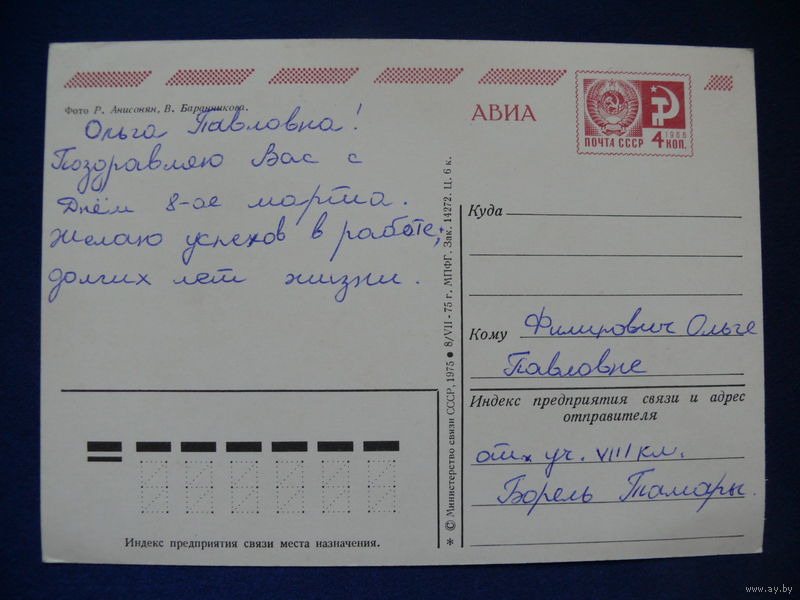 Фото Р. Анисонян, В. Баранникова.
Ольга Павловна!
Поздравляю Вас с
Днём 8-ое марта.
Желаю успехов в работе,
долгих лет жизни.
Индекс предприятия связи места назначения.
* © Министерство связи СССР, 1975 ● 8/VII - 75 г. МПФГ. Зак. 14272. Ц. 6 к.
АВИА
1966
ПОЧТА СССР 4 КОП.
Куда
Кому Филипович Ольге
Павловне
Индекс предприятия связи и адрес
отправителя
от уч. VIII кл.
Борель Тамары.
www.ay.by